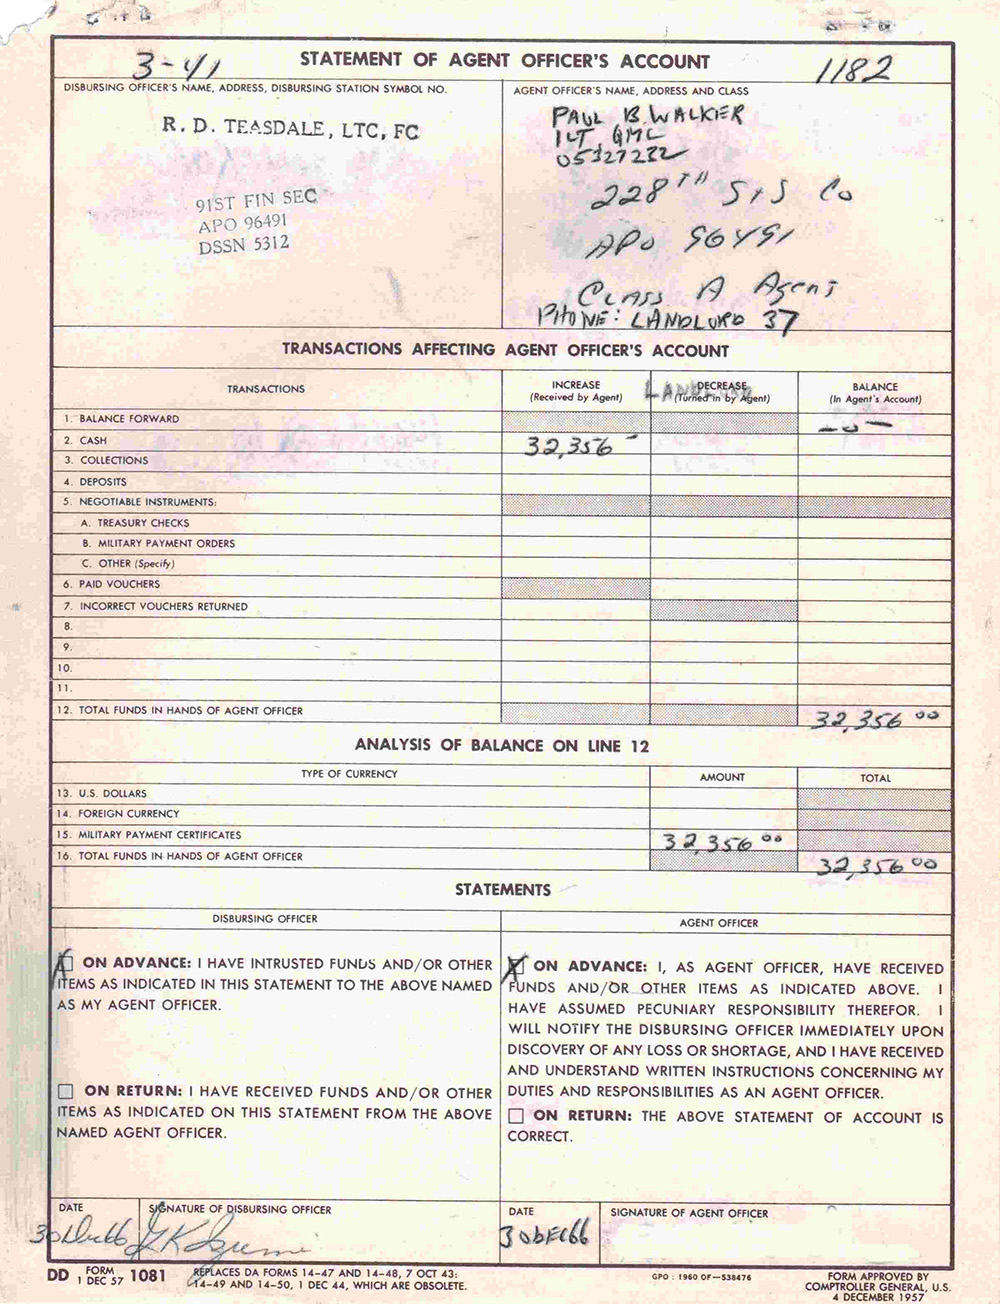 3-41
STATEMENT OF AGENT OFFICER'S ACCOUNT
1182
DISBURSING OFFICER'S NAME, ADDRESS, DISBURSING STATION SYMBOL NO.
R. D. TEASDALE, LTC, FC
91ST FIN SEC
APO 96491
DSSN 5312
AGENT OFFICER'S NAME, ADDRESS AND CLASS
PAUL B. WALKER
1LT QMC
05327232
228TH S+S Co
APO 96491
Class A Agent
PHONE: LANDLORD 37
TRANSACTIONS AFFECTING AGENT OFFICER'S ACCOUNT
TRANSACTIONS
INCREASE
(Received by Agent)
LANDLORD
DECREASE
(Turned in by Agent)
BALANCE
(In Agent's Account)
1. BALANCE FORWARD -0-
2. CASH 32,356 -
3. COLLECTIONS
4. DEPOSITS
5. NEGOTIABLE INSTRUMENTS:
A. TREASURY CHECKS
B. MILITARY PAYMENT ORDERS
C. OTHER (Specify)
6. PAID VOUCHERS
7. INCORRECT VOUCHERS RETURNED
8.
9.
10.
11.
12. TOTAL FUNDS IN HANDS OF AGENT OFFICER 32,356 00
ANALYSIS OF BALANCE ON LINE 12
TYPE OF CURRENCY AMOUNT TOTAL
13. U.S. DOLLARS
14. FOREIGN CURRENCY
15. MILITARY PAYMENT CERTIFICATES 32,356 00
16. TOTAL FUNDS IN HANDS OF AGENT OFFICER 32,356 00
STATEMENTS
DISBURSING OFFICER
X ON ADVANCE: I HAVE INTRUSTED FUNDS AND/OR OTHER
ITEMS AS INDICATED IN THIS STATEMENT TO THE ABOVE NAMED
AS MY AGENT OFFICER.
ON RETURN: I HAVE RECEIVED FUNDS AND/OR OTHER
ITEMS AS INDICATED ON THIS STATEMENT FROM THE ABOVE
NAMED AGENT OFFICER.
AGENT OFFICER
X ON ADVANCE: I, AS AGENT OFFICER, HAVE RECEIVED
FUNDS AND/OR OTHER ITEMS AS INDICATED ABOVE. I
HAVE ASSUMED PECUNIARY RESPONSIBILITY THEREFOR. I
WILL NOTIFY THE DISBURSING OFFICER IMMEDIATELY UPON
DISCOVERY OF ANY LOSS OR SHORTAGE, AND I HAVE RECEIVED
AND UNDERSTAND WRITTEN INSTRUCTIONS CONCERNING MY
DUTIES AND RESPONSIBILITIES AS AN AGENT OFFICER.
ON RETURN: THE ABOVE STATEMENT OF ACCOUNT IS
CORRECT.
DATE
30 Dec 66
SIGNATURE OF DISBURSING OFFICER
DATE
30 DEC 66
SIGNATURE OF AGENT OFFICER
DD FORM 1 DEC 57 1081
REPLACES DA FORMS 14-47 AND 14-48, 7 OCT 43:
14-49 AND 14-50, 1 DEC 44, WHICH ARE OBSOLETE.
GPO : 1960 OF—538476
FORM APPROVED BY
COMPTROLLER GENERAL, U.S.
4 DECEMBER 1957